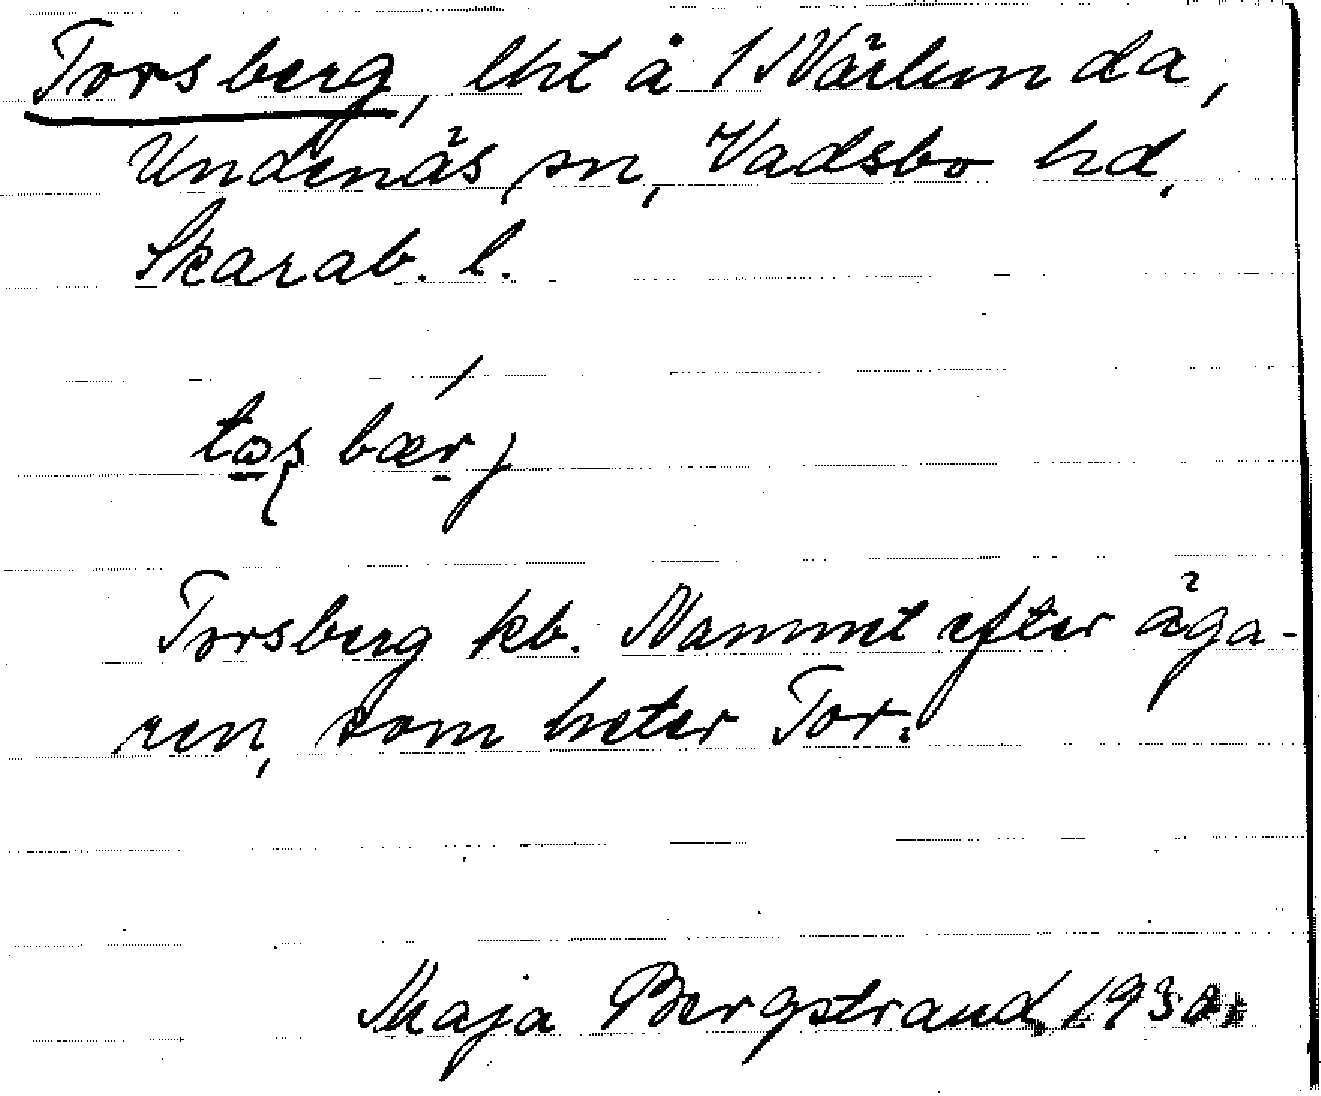 Torsberg, lht å 1 Närlunda,
Undenäs sn, Vadsbo hd,
Skarab. l.
tɷʂ bærj
Torsberg kb. Namnet efter äga-
ren, som heter Tor.
Maja Bergstrand, 1930.